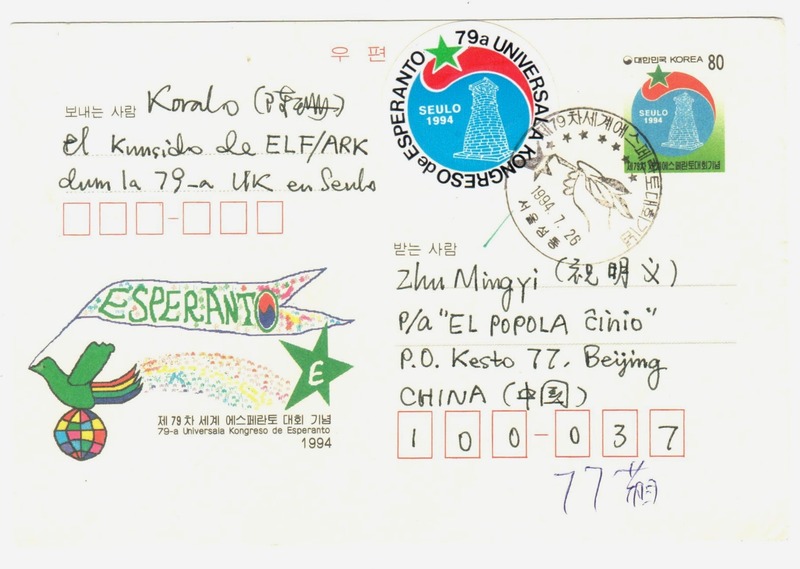 우 편
79a UNIVERSALA KONGRESO de ESPERANTO
SEULO
1994
대한민국 KOREA 80
SEULO
1994
제79차 세계에스페란토대회기념
제79차세계에스페란토대회기념
1994. 7. 26
보내는 사람 Koralo
el kunsido de ELF/ARK
dum la 79-a UK en Seulo
ESPERANTO
E
제 79 차 세계 에스페란토 대회 기념
79-a Universala Kongreso de Esperanto
1994
받는 사람
Zhu Mingyi (祝明义)
P/a "EL POPOLA ĈINIO"
P.O. Kesto 77, Beijing
CHINA (中國)
100-037
77